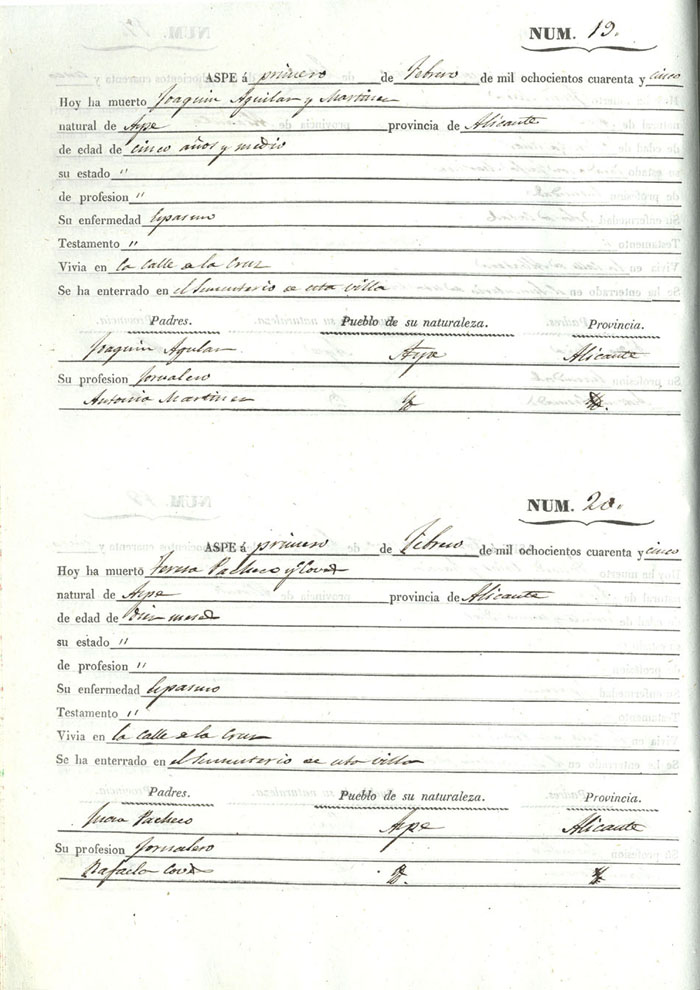 NUM. 19.
ASPE á primero de Febrero de mil ochocientos cuarenta y cinco
Hoy ha muerto Joaquin Aguilar y Martinez
natural de Aspe provincia de Alicante
de edad de cinco años y medio
su estado "
de profesion "
Su enfermedad Espasmo
Testamento "
Vivia en la Calle de la Cruz
Se ha enterrado en el Sementerio de esta villa
Padres. Pueblo de su naturaleza. Provincia.
Joaquin Aguilar Aspe Alicante
Su profesion Jornalero
Antonia Martinez
NUM. 20.
ASPE á primero de Febrero de mil ochocientos cuarenta y cinco
Hoy ha muerto Teresa Pacheco y
natural de Aspe provincia de Alicante
de edad de Diez meses
su estado "
de profesion "
Su enfermedad Espasmo
Testamento "
Vivia en la Calle de la Cruz
Se ha enterrado en el Sementerio de esta villa
Padres. Pueblo de su naturaleza. Provincia.
Pacheco Aspe Alicante
Su profesion Jornalero
Rafaela